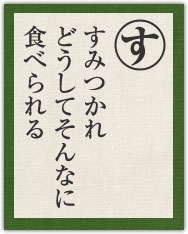 す
すみつかれ
どうしてそんなに
食べられる